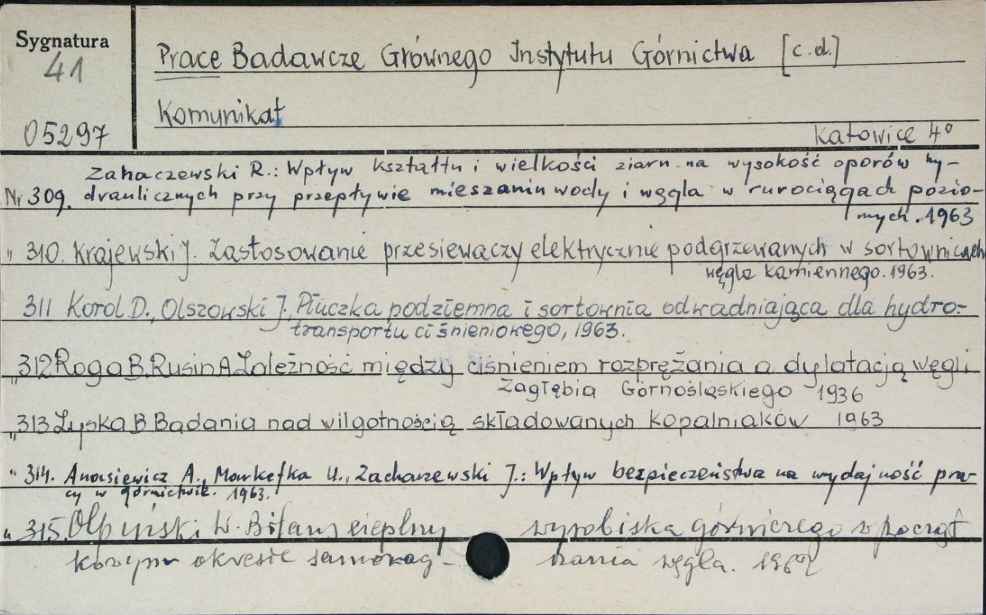 Sygnatura
41
05297
Prace Badawcze Głównego Instytutu Górnictwa [c.d.]
Komunikat
Katowice 4°
Zahaczewski R.: Wpływ kształtu i wielkości ziarn na wysokość oporów hy-
Nr 309. draulicznych przy przepływie mieszanin wody i węgla w rurociągach pozio-
mych. 1963
" 310. Krajewski J. Zastosowanie przesiewaczy elektrycznie podgrzewanych w sortowniach
węgla kamiennego. 1963.
311 Korol D., Olszowski J. Płuczka podziemna i sortownia odwadniająca dla hydro-
transportu ciśnieniowego, 1963.
" 312 Roga B. Rusin A. Zależność między ciśnieniem rozprężania a dylatacją węgli
Zagłębia Górnośląskiego 1936
" 313 Łyska B Badania nad wilgotnością składowanych kopalniaków 1963
" 314. Anasiewicz A., Markefka U., Zacharzewski J.: Wpływ bezpieczeństwa na wydajność pra-
cy w górnictwie. 1963.
" 315. Olpiński W. Bilans cieplny wyrobiska górniczego w począt
kowym okresie samozag- rzania węgla. 1962